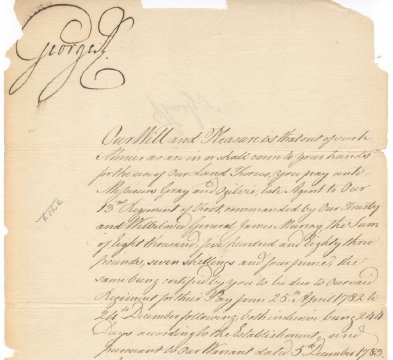 George R.
Our Will and Pleasure is that out of such
Monies as are in or shall come to your hands
for the use of our Land Forces, you pay unto
Messieurs Gray and Ogilvie, late Agent to Our
13th Regiment of Foot, commanded by Our Trusty
and Wellbeloved General James Murray, the Sum
of Eight thousand, five hundred and Eighty three
pounds, seven shillings and four pence, the
same being certified by you to be due to Our said
Regiment for their Pay from 25th April 1782 to
24th December following, both inclusive being 244
days according to the Establishment, and
pursuant to Our Warrant dated 5th December 1783